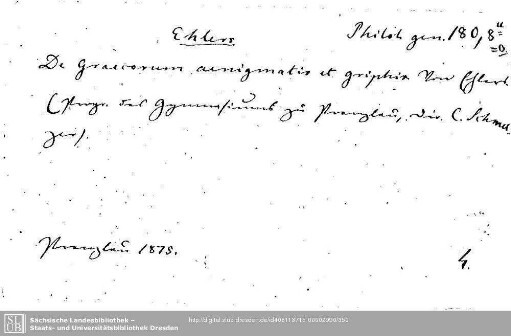 Ehlers.
Philol. gen. 180, 8
De Graecorum aenigmatis et griphis Von Ehlers
(Progr. des Gymnasiums zu Prenzlau, Dir. C. Schmel
zer).
Prenzlau 1875.
4.
Sächsische Landesbibliothek –
Staats- und Universitätsbibliothek Dresden